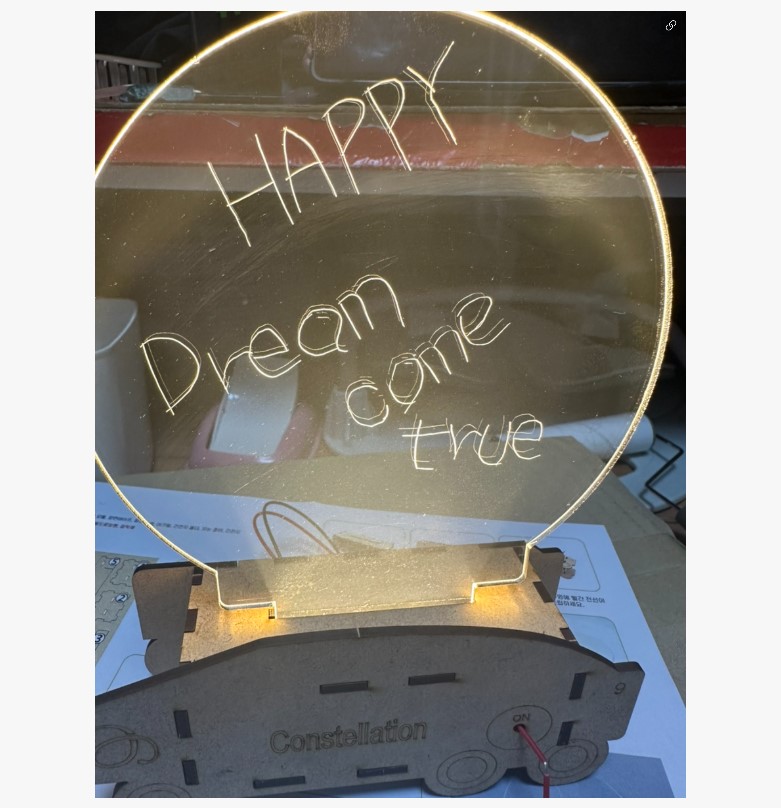 HAPPY
Dream
come
true
Constellation
ON
9